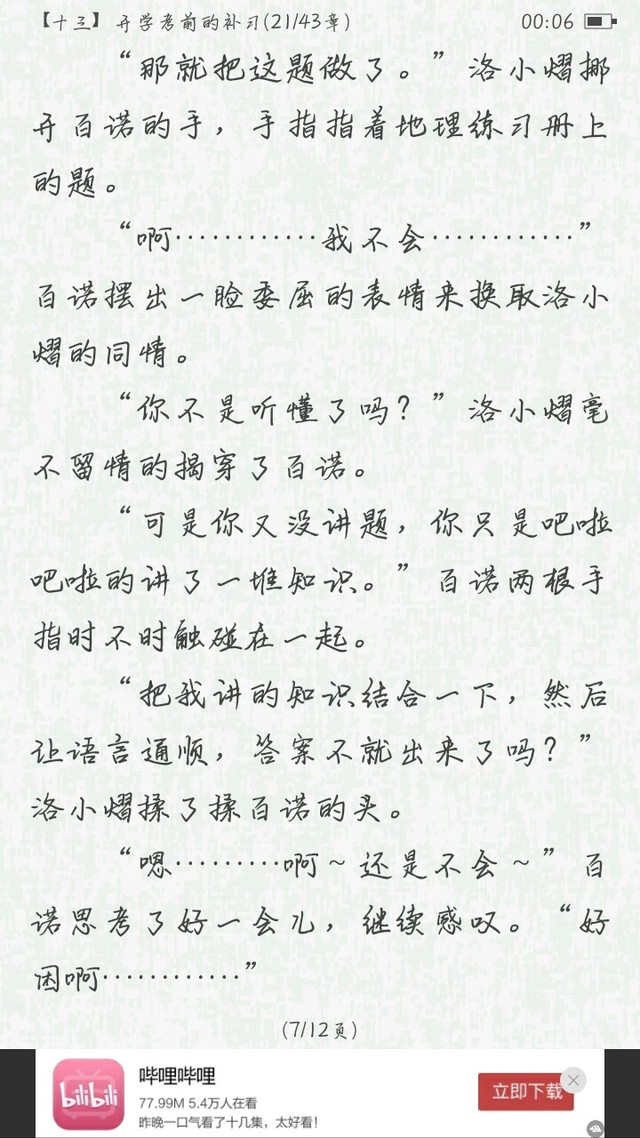 【十三】开学考前的补习(21/43章)
00:06
“那就把这题做了。”洛小熠挪
开百诺的手，手指指着地理练习册上
的题。
“啊…………我不会…………”
百诺摆出一脸委屈的表情来换取洛小
熠的同情。
“你不是听懂了吗？”洛小熠毫
不留情的揭穿了百诺。
“可是你又没讲题，你只是吧啦
吧啦的讲了一堆知识。”百诺两根手
指时不时触碰在一起。
“把我讲的知识结合一下，然后
让语言通顺，答案不就出来了吗？”
洛小熠揉了揉百诺的头。
“嗯………啊～还是不会～”百
诺思考了好一会儿，继续感叹。“好
困啊…………”
(7/12页)
bilibili
哔哩哔哩
77.99M 5.4万人在看
昨晚一口气看了十几集，太好看！
立即下载